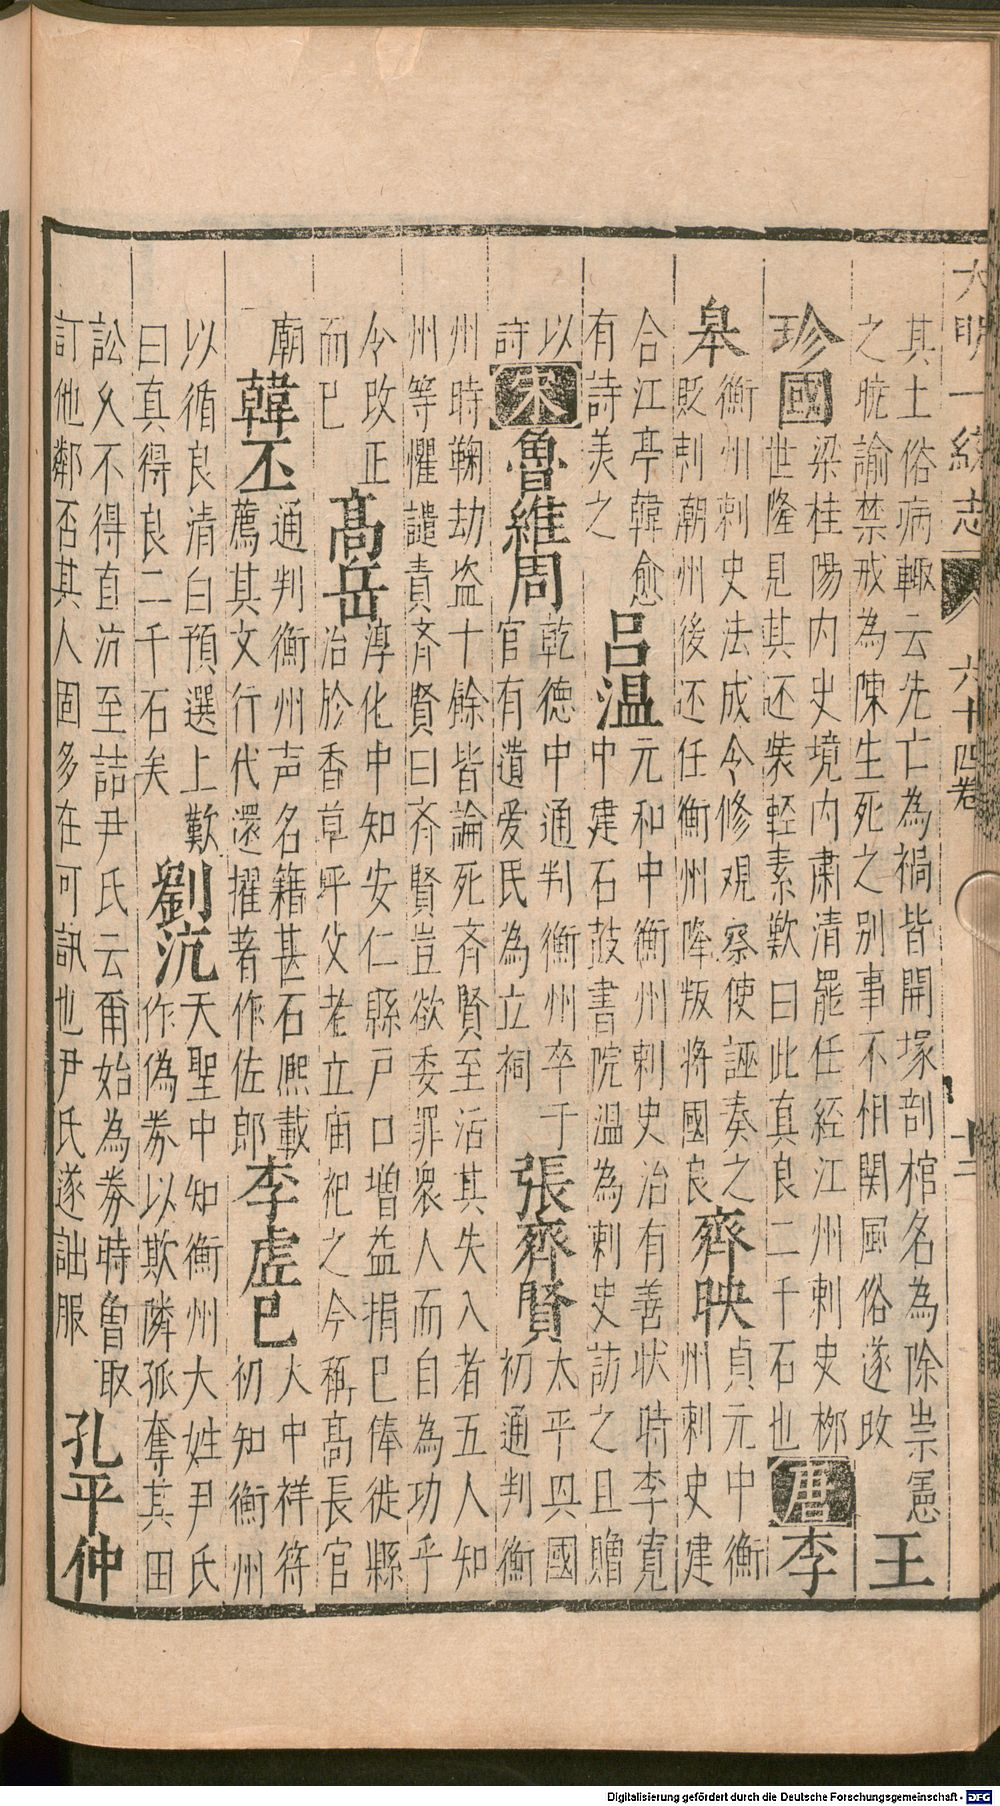 大明一統志 六十四卷 十二
其土俗病輙云先亡為禍皆開塚剖棺名為除祟憲
之暁諭禁戒為陳生死之別事不相関風俗遂改
王
珍國
梁桂陽内史境内肅清罷任経江州剌史栁
世隆見其还裝輕素歎曰此真良二千石也
唐李
皋
衡州剌史法成令修观察使誣奏之
貶刺潮州後还任衡州降叛将國良
齊映
貞元中衡
州剌史建
合江亭韓愈
有詩美之
吕温
元和中衡州剌史治有善状時李寛
中建石鼓書院温為剌史訪之且贈
以
詩
宋魯維周
乾德中通判衡州卒于
官有遺爱民為立祠
張齊賢
太平興國
初通判衡
州時鞠劫盗十餘皆論死斉賢至活其失入者五人知
州等懼譴責斉賢曰斉賢豈欲委罪衆人而自為功乎
令改正
而已
高岳
淳化中知安仁縣戸口増益捐巳俸徙縣
治於香草坪父老立庙祀之今稱高長官
廟
韓丕
通判衡州声名籍甚石熈載
薦其文行代還擢著作佐郎
李虛巳
大中祥符
初知衡州
以循良清白預選上歎
曰真得良二千石矣
劉沆
天聖中知衡州大姓尹氏
作偽券以欺隣孤奪其田
訟久不得直沆至詰尹氏云爾始為券時曽取
訂他鄰否其人固多在可訊也尹氏遂詘服
孔平仲
Digitalisierung gefördert durch die Deutsche Forschungsgemeinschaft - DFG